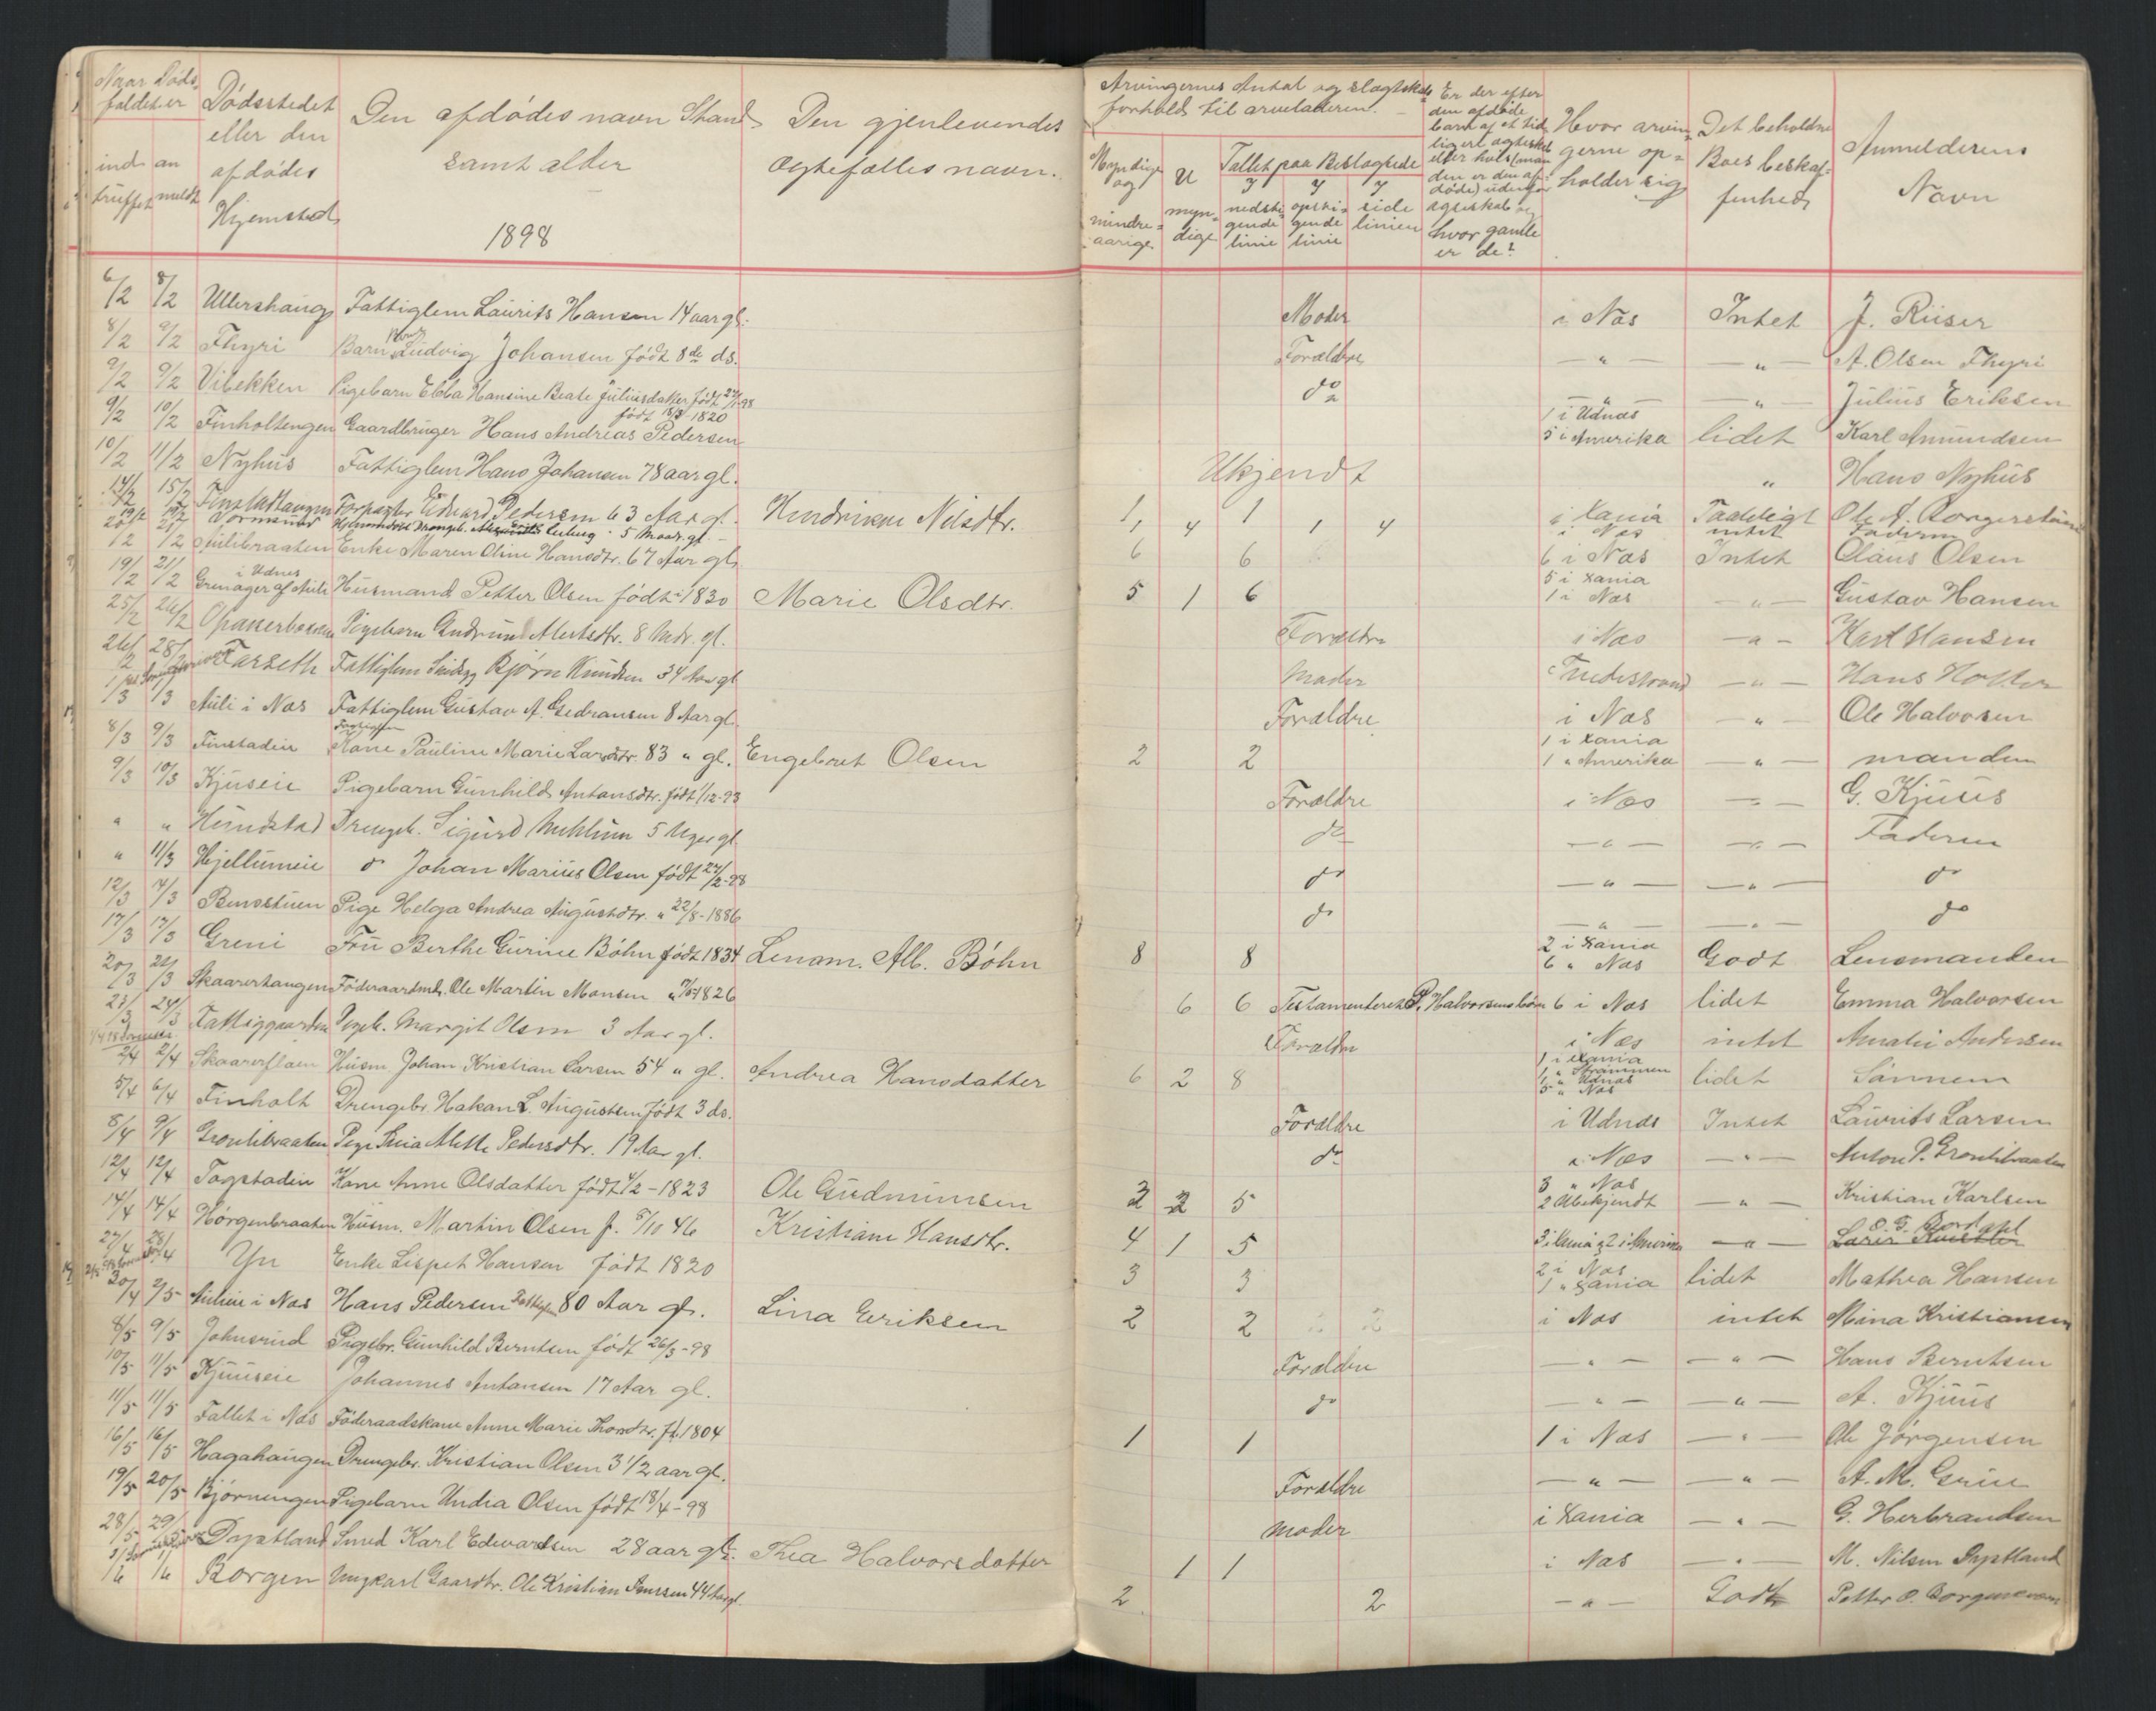 Naar Døds-
faldet er
ind-
truffet
an
meldt
Dødsstedet
eller den
afdødes
Hjemsted
Den afdødes navn Stand
samt alder
1898
Den gjenlevendes
ægtefælles navn.
Arvingernes Antal og slægtskabs
forhold til arveladeren.
Myndige
og
mindre-
aarige
U
myn-
dige
Tallet paa Beslægtede
I
nedsti-
gende
linie
I
opsti-
gende
linie
I
side
linien
Er der efter
den afdøde
barn af et tid-
ligere ægteskab
eller hvis (man
den er den af-
døde) udenfor
ægteskab og
hvor gamle
er de?
Hvor arvin-
gerne op-
holder sig
Det beholdne
Boes beskaf-
fenhed
Anmelderens
Navn
6/2 8/2 Ullershaug Fattiglem Laurits Hansen 14 aar gl. Moder i Næs Intet J. Riiser
8/2 9/2 Thyri Barn Ludvig Johansen født 8de ds. Forældre — " — — " — A. Olsen Thyri
9/2 9/2 Vibekken Pigebarn Ebba Hansine Beate Juliusdatter født 27/1-98 do — " — — " — Julius Eriksen
9/2 10/2 Finholtengen Gaardbruger Hans Andreas Pedersen født 18/3-1820 1 i Udnæs 5 i Amerika lidet Karl Amundsen
10/2 11/2 Nyhus Fattiglem Hans Johansen 78 aar gl. Ukjendt " Hans Nyhus
14/2 15/2 Finstadhaugen Forpagter Edvard Pedersen 63 Aar gl. Hendrikke Nilsdtr. 1 4 1 1 4 i Xania Taaleligt Ole A.
Drengeb. 5 Maan. gl. i Næs intet Faderen
20/2 21/2 Aulibraaten Enke Maren Oline Hansdtr. 67 Aar gl. 6 6 6 i Næs Intet Olaus Olsen
19/2 21/2 Grenager af Auli i Udnes Husmand Petter Olsen født 1830 Marie Olsdtr. 5 1 6 5 i Xania 1 i Næs — " — Gustav Hansen
25/2 26/2 Opakerbakken Pigebarn Gudrun Albertsdtr. 8 Mdr. gl. Forældre i Næs — " — Karl Hansen
26/2 28/2 Farseth Fattiglem Sindssyg Bjørn Knudsen 34 Aar gl. Moder Tvedestrand — " — Hans Holter
1/3 1/3 Auli i Næs Fattiglem Gustav A. Gedransen 8 Aar gl. Forældre i Næs — " — Ole Halvorsen
8/3 9/3 Finstadeie Fattiglem Kone Pauline Marie Larsdtr. 83 " gl. Engebret Olsen 2 2 1 i Xania 1 " Amerika — " — manden
9/3 10/3 Kjuseie Pigebarn Gunhild Antonsdtr. født 1/12-93 Forældre i Næs — " — G. Kjuus
" " Hundstad Drengeb. Sigurd Mehlum 5 Uger gl. do — " — — " — Faderen
" 11/3 Hjellumeie do Johan Marius Olsen født 27/2-98 do — " — — " — do
12/3 14/3 Bunæstuen Pige Helga Andrea Augustdtr. " 22/8-1886 do — " — — " — do
17/3 17/3 Greni Fru Berthe Gurine Bøhn født 1834 Lensm. Alb. Bøhn 8 8 2 i Xania 6 " Næs Godt Lensmanden
20/3 21/3 Skaarerhaugen Föderaadmd. Ole Martin Monsen 1826 6 6 Testamenteret P. Halvorsens børn 6 i Næs lidet Emma Halvorsen
23/3 24/3 Fattiggaarden Pigeb. Margit Olsen 3 Aar gl. Forældre i Næs intet Amalie Andersen
2/4 2/4 Skaarerflaen Husm. Johan Kristian Larsen 54 " gl. Andrea Hansdatter 6 2 8 1 i Xania 1 " Strømmen 1 " Udnæs 5 " Næs lidet Sønnen
5/4 6/4 Finholt Drengebr. Hakan L. Augustsen født 3 ds. Forældre i Udnæs Intet Laurits Larsen
8/4 9/4 Gronlibraaten Pige Alette Pedersdtr. 19 Aar gl. do i Næs — " — Anton P. Gronlibraaten
12/4 12/4 Togstadeie Kone Anne Olsdatter født 4/2-1823 Ole Gudmunsen 3 2 5 3 " Næs 2 Ubekjendt — " — Kristian Karlsen
14/4 14/4 Hørgenbraaten Husm. Martin Olsen f. 5/10 46 Kristiane Hansdtr. 4 1 5 3 i Xania & 2 i Amerika — " — O. G.
27/4 28/4 Yn Enke Lispet Hansen født 1820 3 3 2 i Næs 1 " Xania lidet Mathea Hansen
30/4 2/5 Aulieie i Næs Hans Pedersen Fattiglem 80 Aar gl. Lina Eriksen 2 2 i Næs intet Mina Kristiansen
8/5 9/5 Johnsrud Pigebr. Gunhild Berntsen født 26/3-98 Forældre — " — — " — Hans Berntsen
10/5 11/5 Kjuuseie Johannes Antonsen 17 Aar gl. do — " — — " — A. Kjuus
11/5 11/5 Fallet i Næs Föderaadskone Anne Marie Thordtr. f. 1804 1 1 1 i Næs — " — Ole Jørgensen
16/5 16/5 Hagahaugen Drengebr. Kristian Olsen 3 1/2 aar gl. Forældre — " — — " — A. M. Grue
19/5 20/5 Bjørningen Pigebarn Undia Olsen født 18/4-98 Moder i Xania — " — G. Herbrandsen
28/5 29/5 Dyptland Smed Karl Edwardsen 28 aar gl. Thea Halvorsdatter 1 1 i Næs — " — M. Nilsen Dyptland
1/6 1/6 Borgen Ungkarl Gaardbr. Ole Kristian 44 Aar gl. 2 2 — " — Godt Petter O.